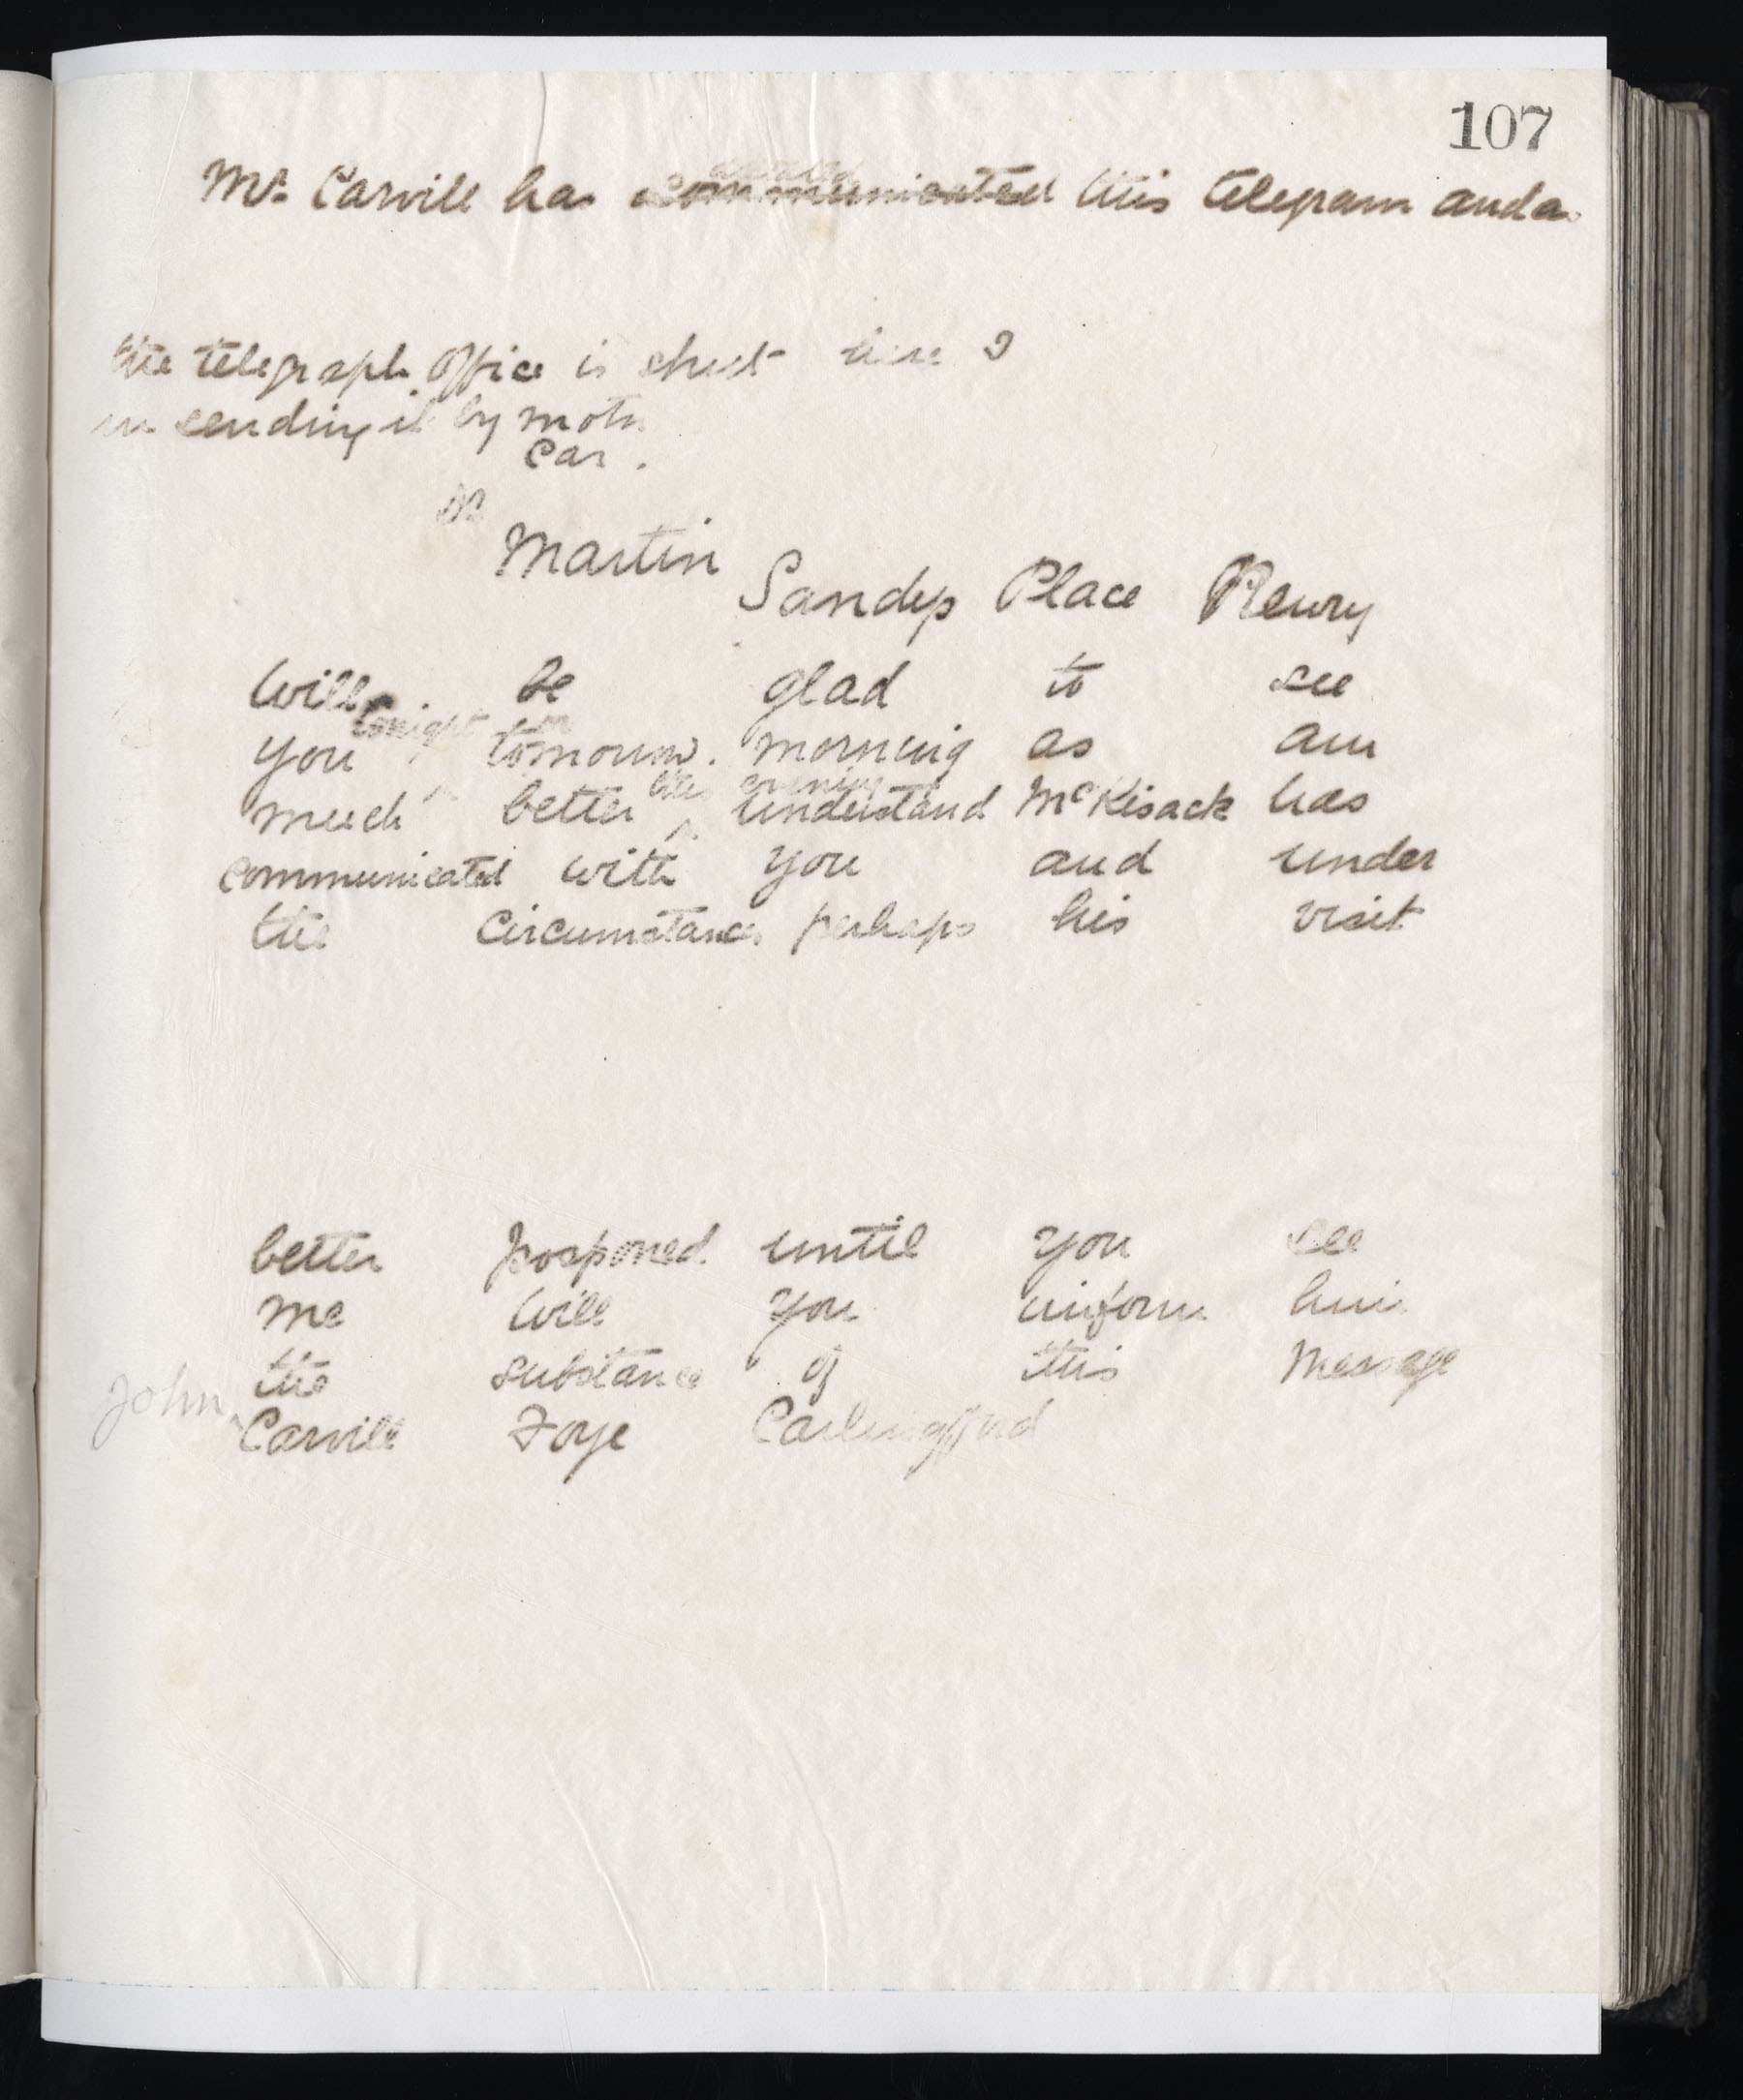 107
Mr. Carvill has communicated this telegram and as
the telegraph Office is shut here I
in sending it by motor
car.
Dr
Martin
Sandys Place Newry
Will be glad to see
tonight or
you tomorrow. morning as am
this evening
much better understand McKisack has
communicated with you and under
the circumstances perhaps his visit
better posponed until you see
me Will you inform him
the substance of this Message
John
Carvill Foye Carlingford